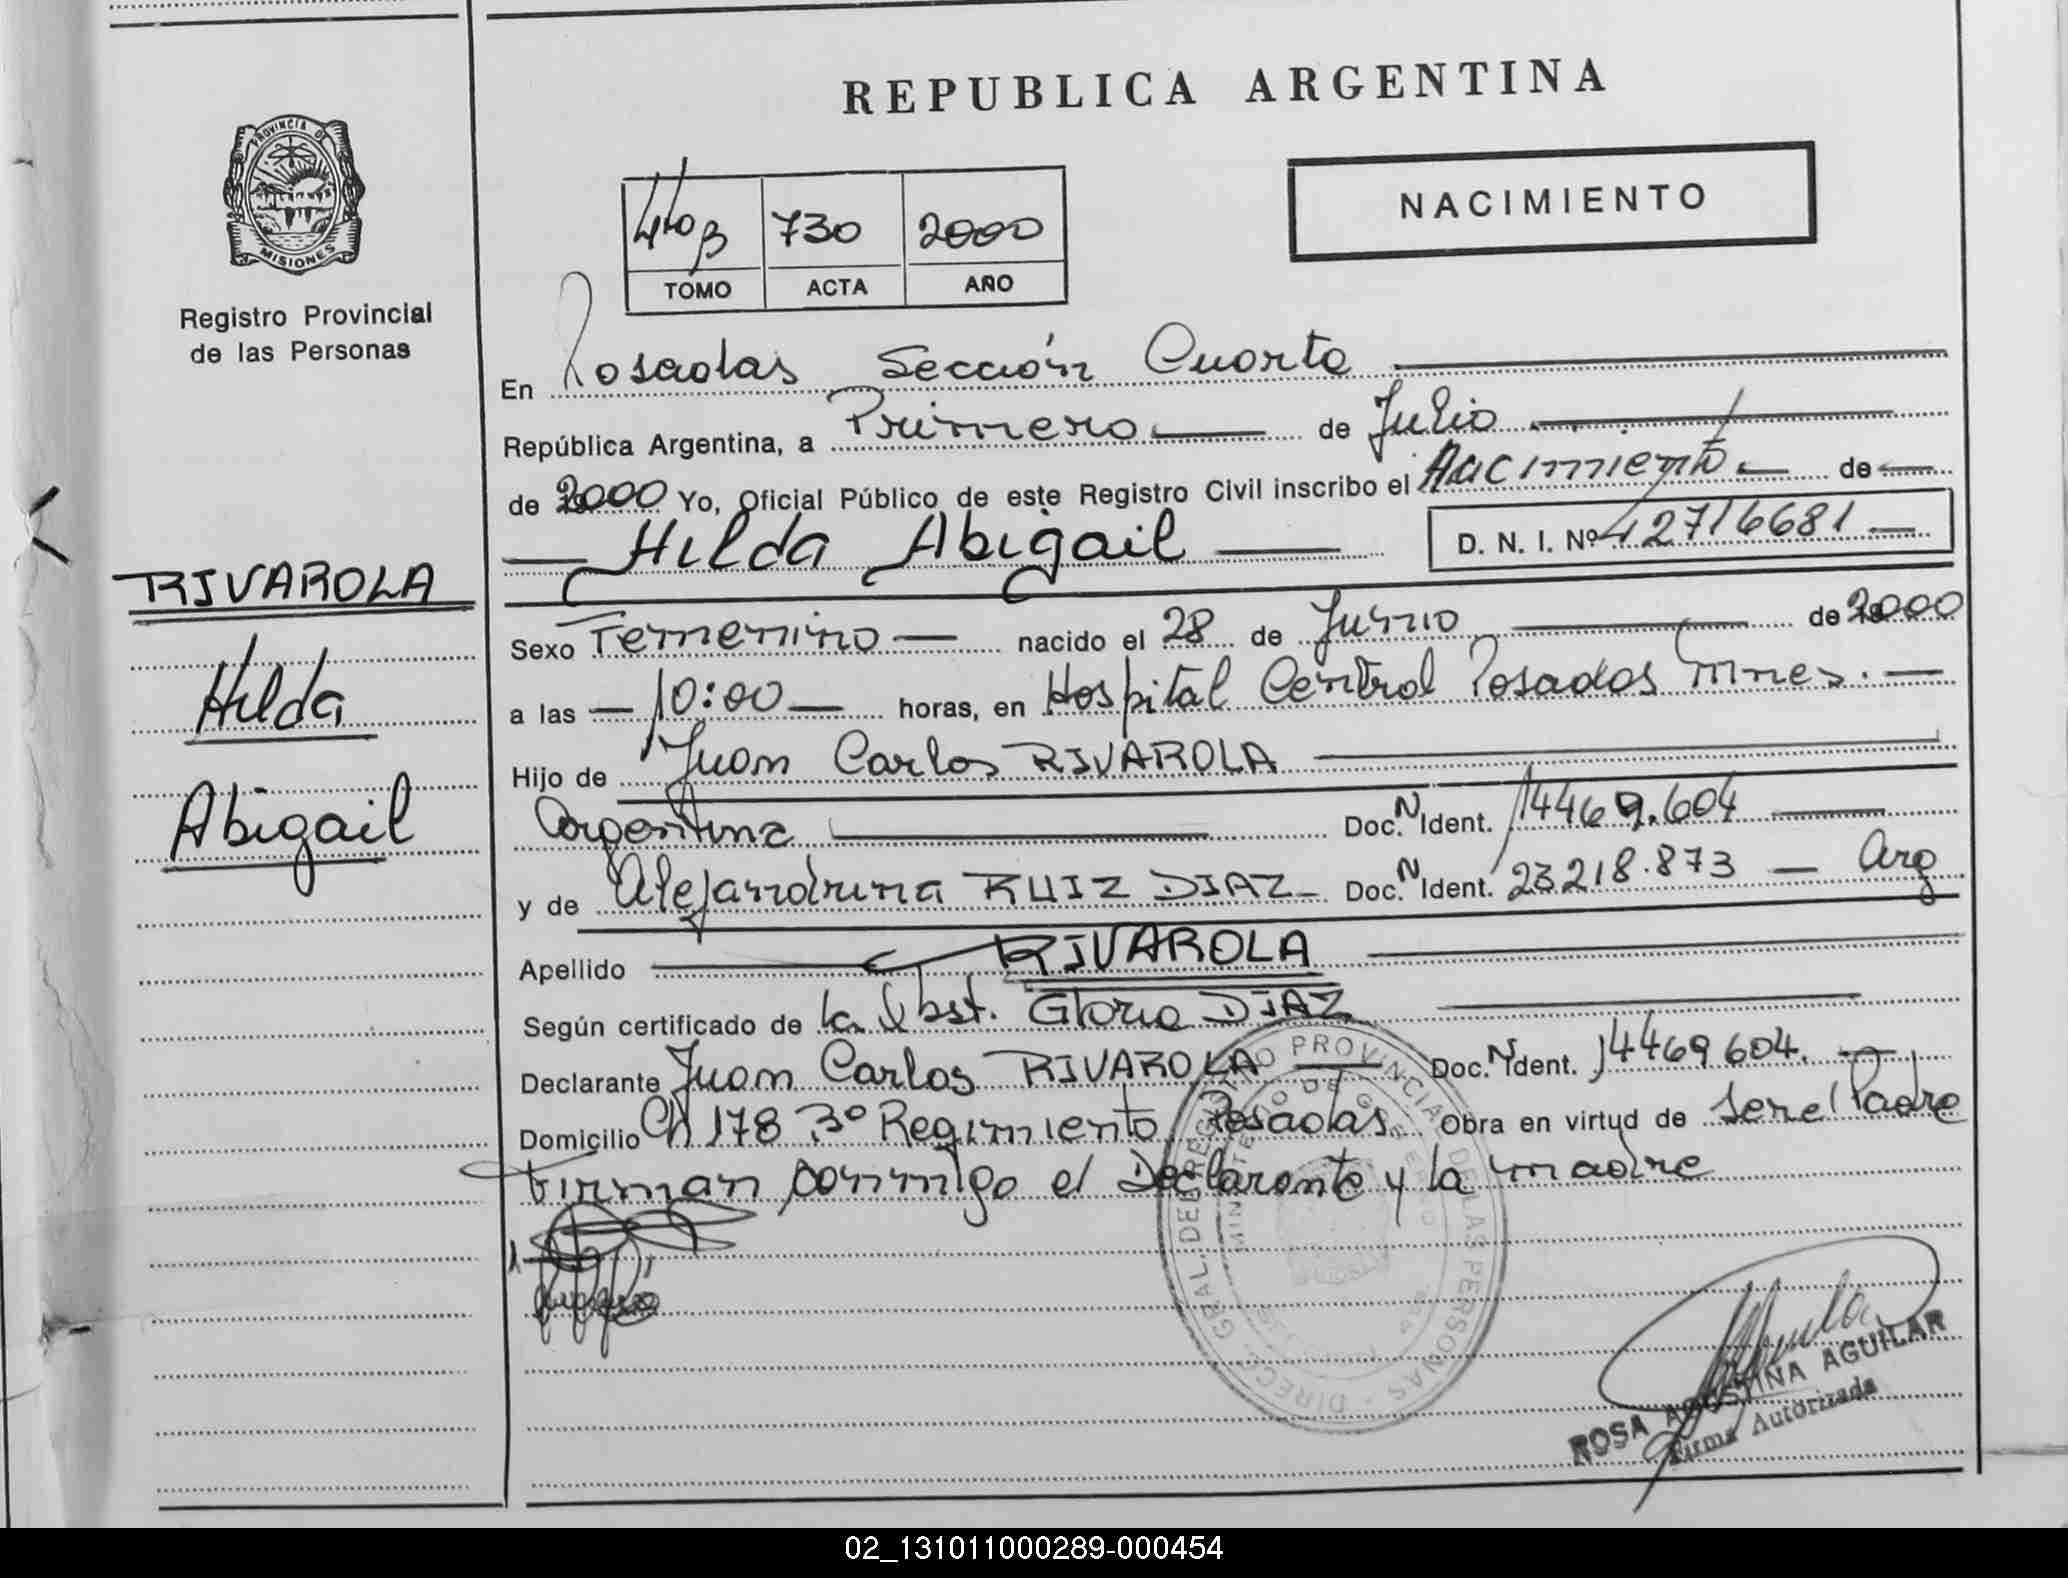 REPUBLICA ARGENTINA
PROVINCIA DE
MISIONES
Registro Provincial
de las Personas
NACIMIENTO
4to B 730 2000
TOMO ACTA AÑO
En Posadas Sección Cuarta
República Argentina, a Primero de Julio
de 2000 Yo, Oficial Público de este Registro Civil inscribo el Nacimiento de
Hilda Abigail D. N. I. Nº 42716681
RIVAROLA
Hilda
Abigail
Sexo Femenino nacido el 28 de Junio de 2000
a las 10:00 horas, en Hospital Central Posadas Mnes.
Hijo de Juan Carlos RIVAROLA
Argentina Doc. N Ident. 14469.604
y de Alejandrina RUIZ DIAZ Doc. N Ident. 23.218.873 Arg
Apellido RIVAROLA
Según certificado de la Obst. Gloria DIAZ
Declarante Juan Carlos RIVAROLA Doc. N Ident. 14469604.
Domicilio Ch 178 3º Regimiento Posadas Obra en virtud de ser el Padre
Firman conmigo el Declarante y la madre
DIREC. GRAL. DE REGISTRO PROVINCIAL DE LAS PERSONAS
MINISTERIO DE GOBIERNO
ROSA AGOSTINA AGUILAR
Firma Autorizada
02_131011000289-000454